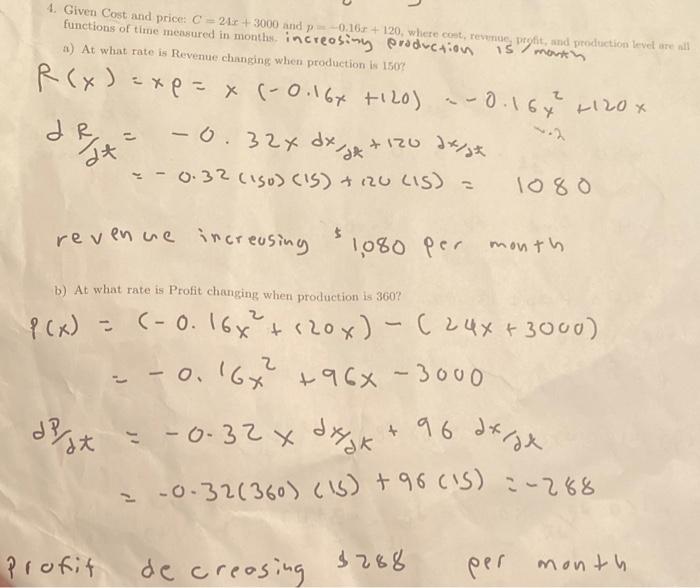 4. Given Cost and price: C = 24x + 3000 and p = -0.16x + 120, where cost, revenue, profit, and production level are all
functions of time measured in months. increasing production 15/month
a) At what rate is Revenue changing when production is 150?
R(x) = xp = x (-0.16x +120) = -0.16x² +120x
dR/dt = -0.32x dx/dt + 120 dx/dt
= -0.32 (150) (15) + 120 (15) = 1080
revenue increasing $1,080 per month
b) At what rate is Profit changing when production is 360?
P(x) = (-0.16x² + 120x) - (24x + 3000)
= -0.16x² + 96x - 3000
dP/dt = -0.32x dx/dt + 96 dx/dt
= -0.32(360) (15) + 96 (15) = -288
Profit decreasing $288 per month